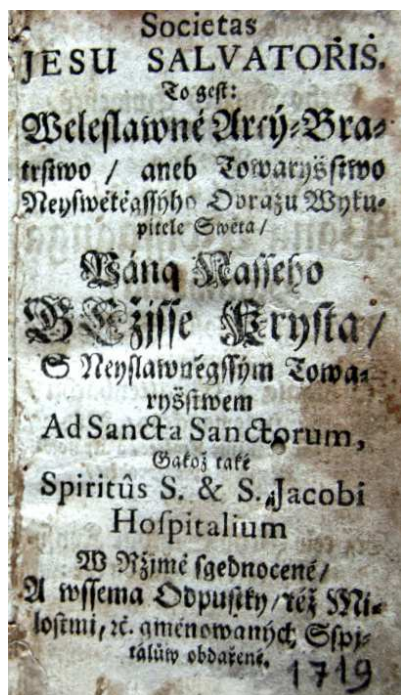 Societas
JESU SALVATORIS.
To gest:
Weleslawné Arcý-Bra-
trstwo / aneb Towaryšstwo
Neyswětěgssýho Obrazu Wyku-
pitele Swěta /
Pána Nasseho
GEžjsse Krysta /
S Neyslawněgssým Towa-
ryšstwem
Ad Sancta Sanctorum,
Gakož také
Spiritûs S. & S. Jacobi
Hospitalium
W Ržjmě sgednocené /
A wssema Odpustky / též Mi-
lostmi, ꝛc. gménowaných Sspj-
tálůw obdařené.
1719